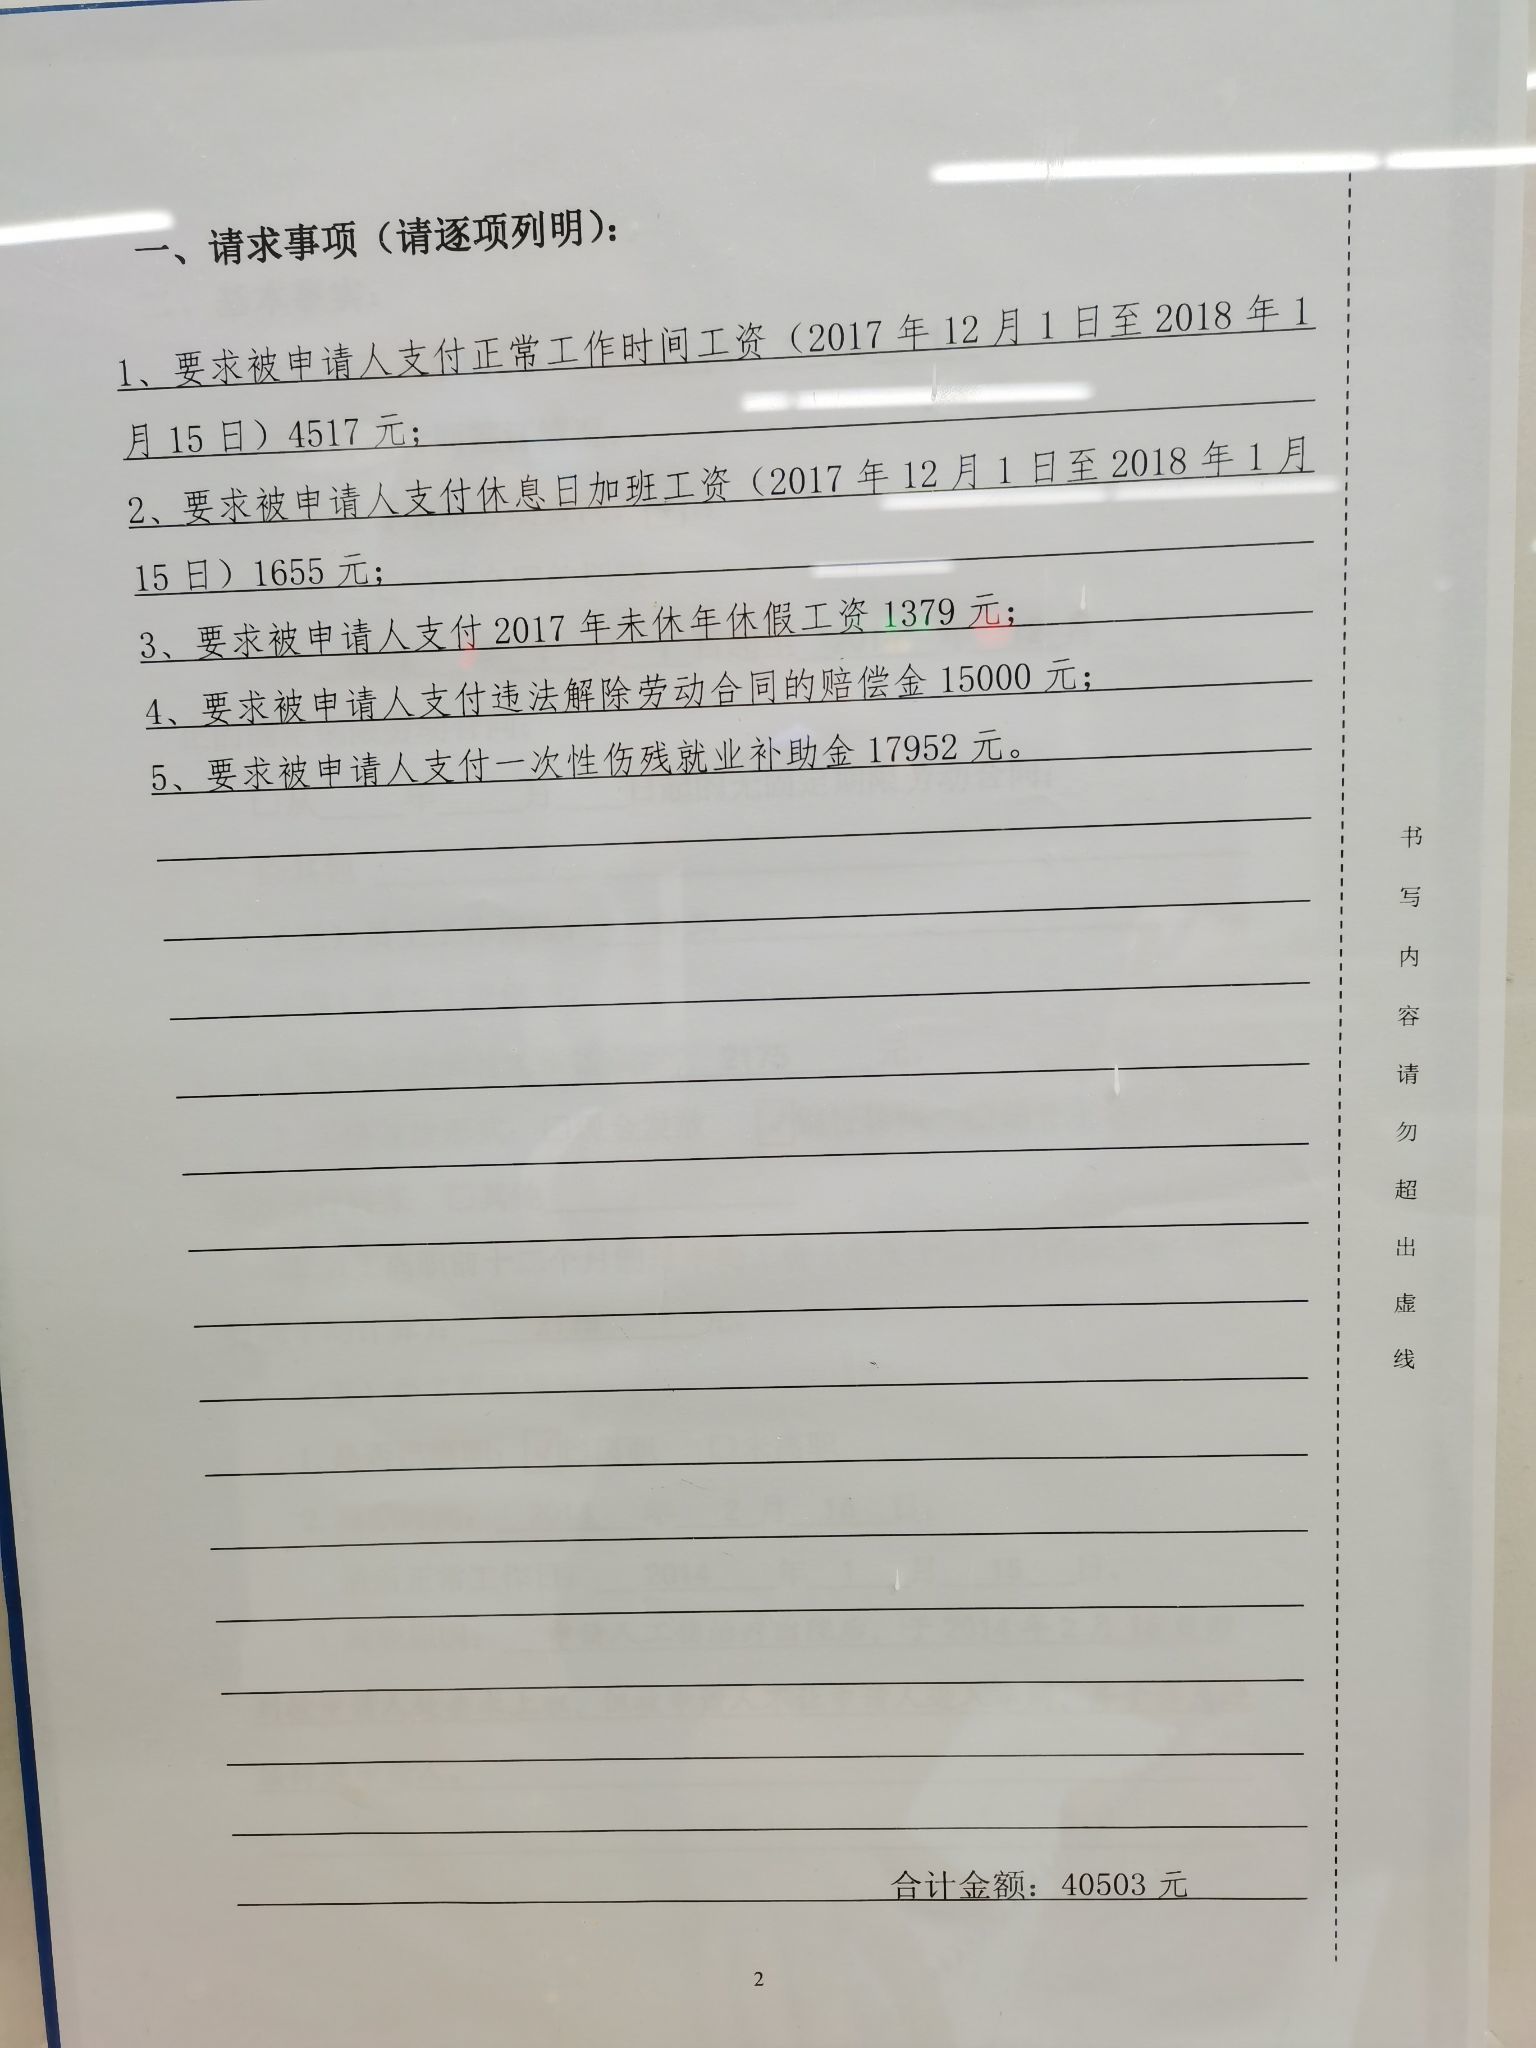 一、请求事项（请逐项列明）：
1、要求被申请人支付正常工作时间工资（2017 年 12 月 1 日至 2018 年 1
月 15 日）4517 元；
2、要求被申请人支付休息日加班工资（2017 年 12 月 1 日至 2018 年 1 月
15 日）1655 元；
3、要求被申请人支付 2017 年未休年休假工资 1379 元；
4、要求被申请人支付违法解除劳动合同的赔偿金 15000 元；
5、要求被申请人支付一次性伤残就业补助金 17952 元。
合计金额：40503 元
2
书写内容请勿超出虚线